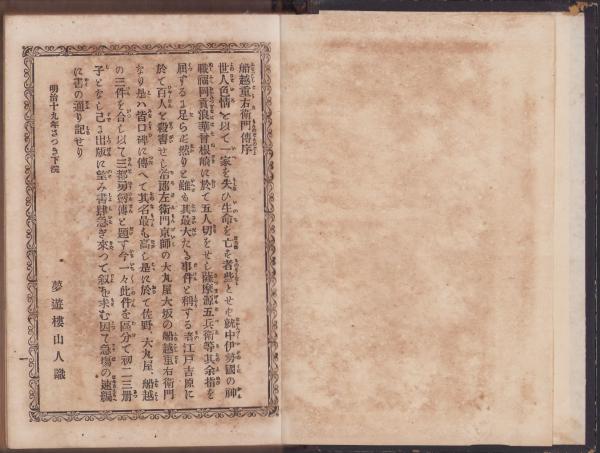 船越重右衛門傳序
世人色情を以て一家を失ひ生命を亡す者些とせず就中伊勢國の神
職福岡貢浪華曾根崎に於て五人切をせし薩摩源五兵衛等其余指を
屈するに足らず然りと雖も其最大たる事件と稱する者江戸吉原に
於て百人を殺害せし治郎左衛門京師の大丸屋大坂の船越重右衛門
なり是ハ皆口碑に傳へて其名最も高し是に於て佐野、大丸屋、船越
の三件を合し以て三都勇剱傳と題す今一々此件を區分て初二三册
子となし已に出版に望み書肆急ぎ來つて叙を求む因て急場の速綴
に書の通り記せり
明治十九年さつき下浣
夢遊樓山人識